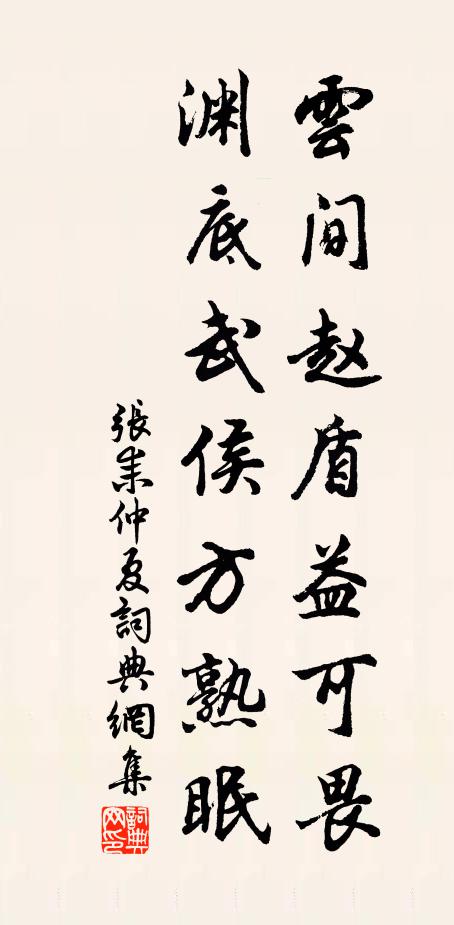 雲间赵盾益可畏
渊底武侯方熟眠
張耒仲夏詞典網集
詞典網印